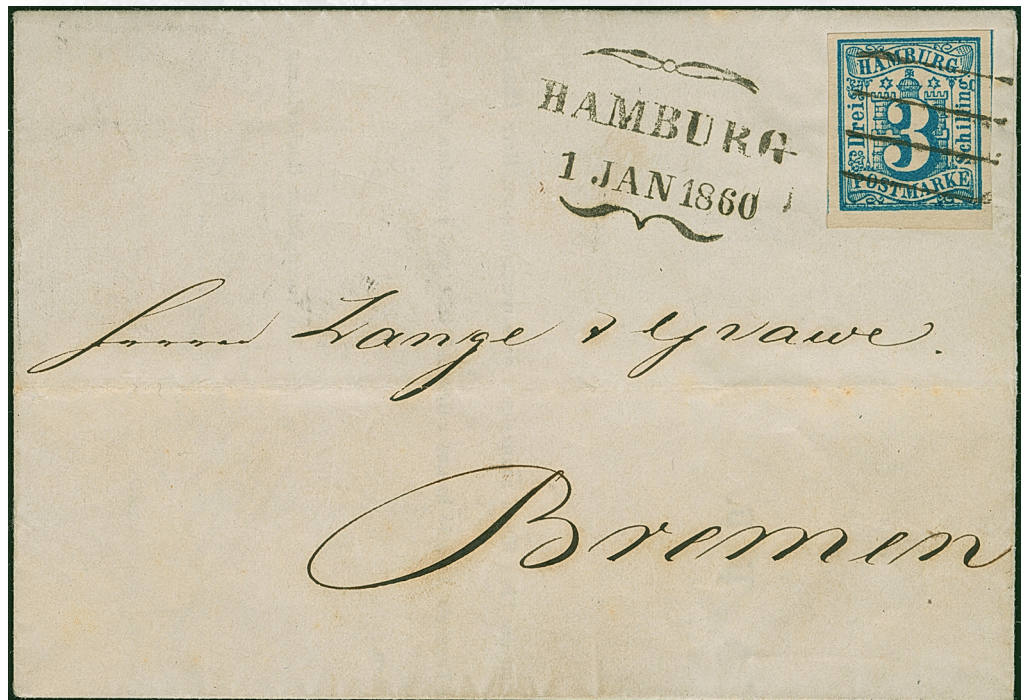 HAMBURG
1 JAN 1860
HAMBURG
Drei
3
Schilling
POSTMARKE
Herren Lange & Grawe.
Bremen